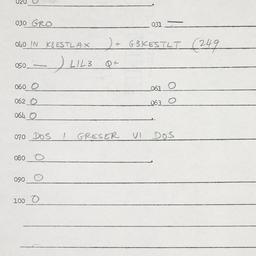 020 O
030 GRO 031 —
040 IN KLESTLAX )+ G3KESTLT (249
050 — ) L1L3 Q+
060 O 061 O
062 O 063 O
064 O
070 DOS 1 GRESER VI DOS
080 O
090 O
100 O